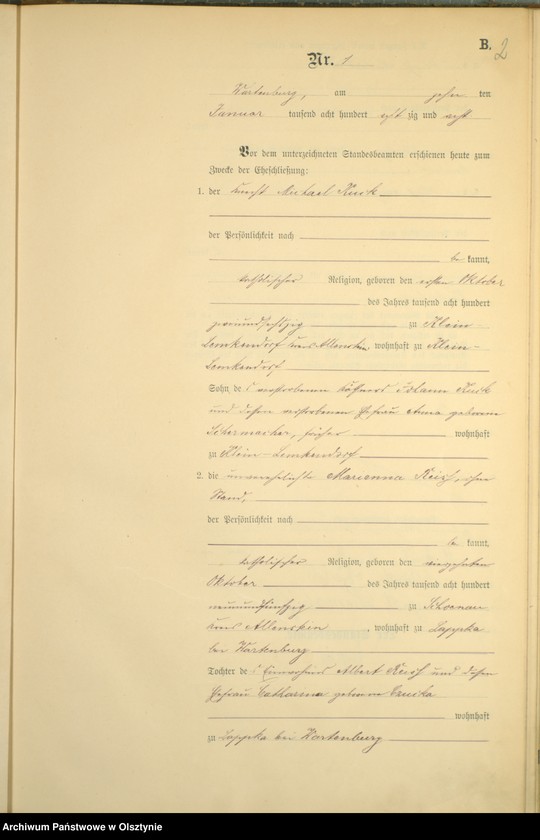 B. 2
Nr. 1
Wartenburg, am zehn ten
Januar tausend acht hundert acht zig und acht
Vor dem unterzeichneten Standesbeamten erschienen heute zum
Zwecke der Eheschließung:
1. der Knecht Michael Kuck
der Persönlichkeit nach
be kannt,
katholischer Religion, geboren den ersten Oktober
des Jahres tausend acht hundert
zweiundsechszig zu Klein-
Lemkendorf Kreis Allenstein, wohnhaft zu Klein-
Lemkendorf
Sohn des verstorbenen Käthners Johann Kuck
und dessen verstorbenen Ehefrau Anna geborene
Schermacher, früher wohnhaft
zu Klein-Lemkendorf
2. die unverehelichte Marianna, ohne
Stand,
der Persönlichkeit nach
be kannt,
katholischer Religion, geboren den vierzehnten
Oktober des Jahres tausend acht hundert
neunundfünfzig zu Schoenau
Kreis Allenstein, wohnhaft zu Lapka
bei Wartenburg
Tochter des Einwohners Albert und dessen
Ehefrau Catharina geborene
wohnhaft
zu Lapka bei Wartenburg
Archiwum Państwowe w Olsztynie